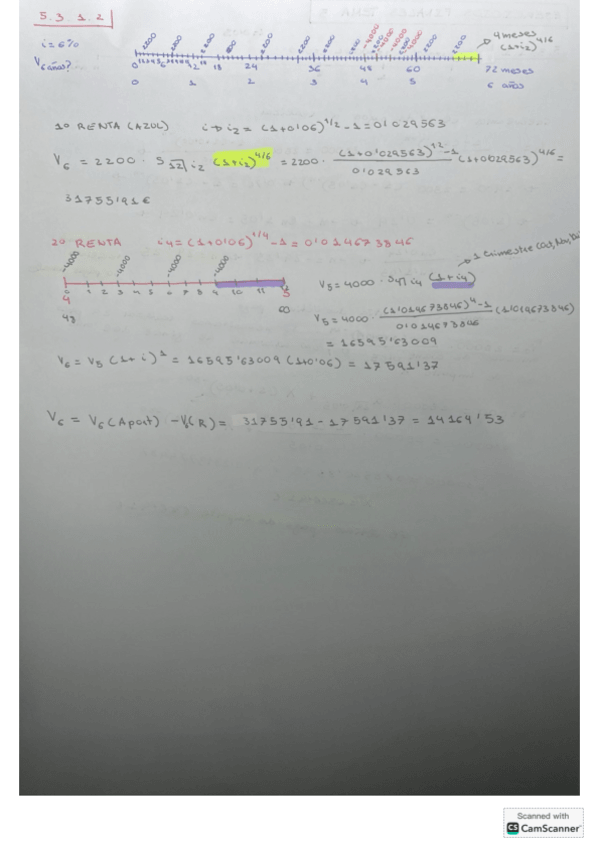 5.3 1.2
i = 6%
4 meses
(1+i2)^4/6
2200 2200 2200 2200 2200 2200 2200 2200 2200 2200
-4000 -4000 -4000 -4000
V6 años?
0 12 18 24 36 48 60 72 meses
0 1 2 3 4 5 6 años
1º RENTA (AZUL) i→i2 = (1+0'06)^1/2 -1 = 0'029563
V6 = 2200 · S12┐i2 (1+i2)^4/6 = 2200 · (1+0'029563)^12 -1 / 0'029563 (1+0'029563)^4/6 =
31755'91€
2º RENTA i4 = (1+0'06)^1/4 -1 = 0'014673846
1 trimestre (Oct, Nov, Di
-4000 -4000 -4000 -4000
0 1 2 3 4 5 6 7 8 9 10 11
4 5
48 60
V5 = 4000 · S4┐i4 (1+i4)
V5 = 4000 · (1'014673846)^4 -1 / 0'014673846 (1'014673846)
= 16595'63009
V6 = V5 (1+i)^1 = 16595'63009 (1+0'06) = 17591'37
V6 = V6 (Aport) - V6(R) = 31755'91 - 17591'37 = 14164'53
Scanned with
CS CamScanner